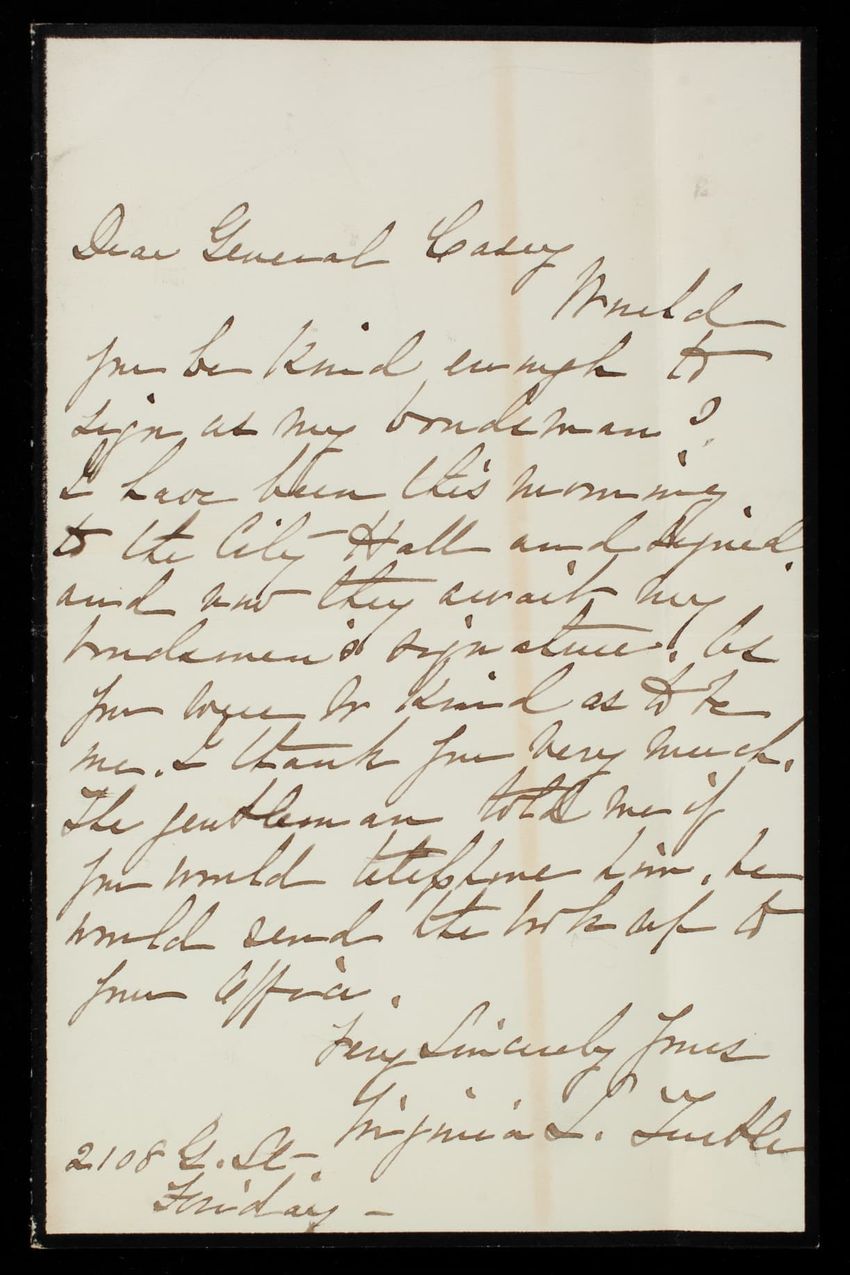 Dear General Casey
Would
you be kind enough to
sign as my bondsman?
I have been this morning
to the City Hall and signed
and now they await my
bondsmen's signature. As
you were so kind as to be
me. I thank you very much.
The gentleman told me if
you would telephone him, he
would send the book up to
your office.
Very Sincerely Yours
Virginia L.
2108 G. St-
Friday -